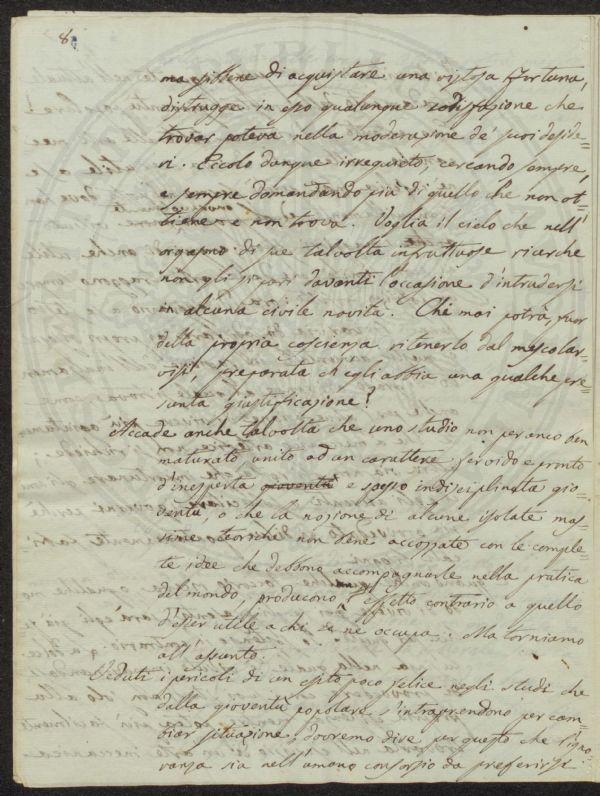 8.
massime di acquistare una vistosa fortuna,
distrugge in esso qualunque sodisfazione che
trovar poteva nella moderazione de' suoi deside=
ri. Eccolo dunque irrequieto, cercando sempre,
e sempre domandando più di quello che non ot=
tiene e non trova. Voglia il cielo che nell'
orgasmo di sue talvolta infruttuose ricerche
non gli si pari davanti l'occasione d'intrudersi
in alcuna civile novità. Chi mai potrà, fuor
della propria coscienza ritenerlo dal mescolar=
visi, preparata ch'egli abbia una qualche pre=
sunta giustificazione?
Accade anche talvolta che uno studio non per anco ben
maturato unito ad un carattere fervido e pronto
d'inesperta e spesso indisciplinata gio=
ventù, o che la nozione di alcune isolate mas=
sime teoriche non bene accoppiate con le comple=
te idee che debbono accompagnarle nella pratica
del mondo, producono effetto contrario a quello
d'esser utile a chi se ne occupa. Ma torniamo
all'assunto.
Veduti i pericoli di un esito poco felice negli studi che
dalla gioventù popolare s'intraprendono per cam=
biar situazione, dovremo dire per questo che l'igno=
ranza sia nell'umano consorzio da preferirsi